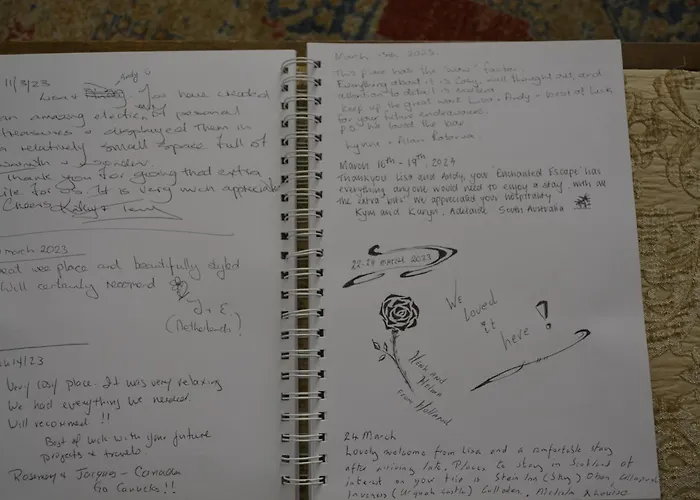 11/3/23
andy
Lisa + You have created
an amazing of personal
treasures + displayed them in
relatively small space full of
warmth +
Thank you for giving that extra
for us. It is very much appreciate
Cheers Kathy + Terry
march 2023
we place and beautifully
Will certainly recomend
J + E.
(Netherlands!)
14/23
Very cosy place. It was very relaxing
We had everything we needed.
Will recommend !!
Best of luck with your future
projects & travels.
Rosemary & Jacques - Canada
Go Canucks!!
March 2023.
This place has the "wow" factor.
Everything about it is cosy, well thought out, and
attention to detail is excellent
Keep up the great work Lisa + Andy - best of luck
for your future endeavours.
PS We loved the bar
Lynne + Alan
March 16th - 19th 2024
Thankyou Lisa and Andy, your 'Enchanted Escape' has
everything anyone would need to enjoy a stay, with all
the extra "bits". We appreciated your hospitality.
Kym and Karyn, Adelaide South Australia
22-24 march 2023
We
loved
it
here!
Henk and
from Holland
24 March
Lovely welcome from Lisa and a comfortable stay
after arriving late. Places to stay in Scotland of
interest on your trip is Stein Inn (Skye) Oban,
Inverness (Urquhart castle) Culloden,